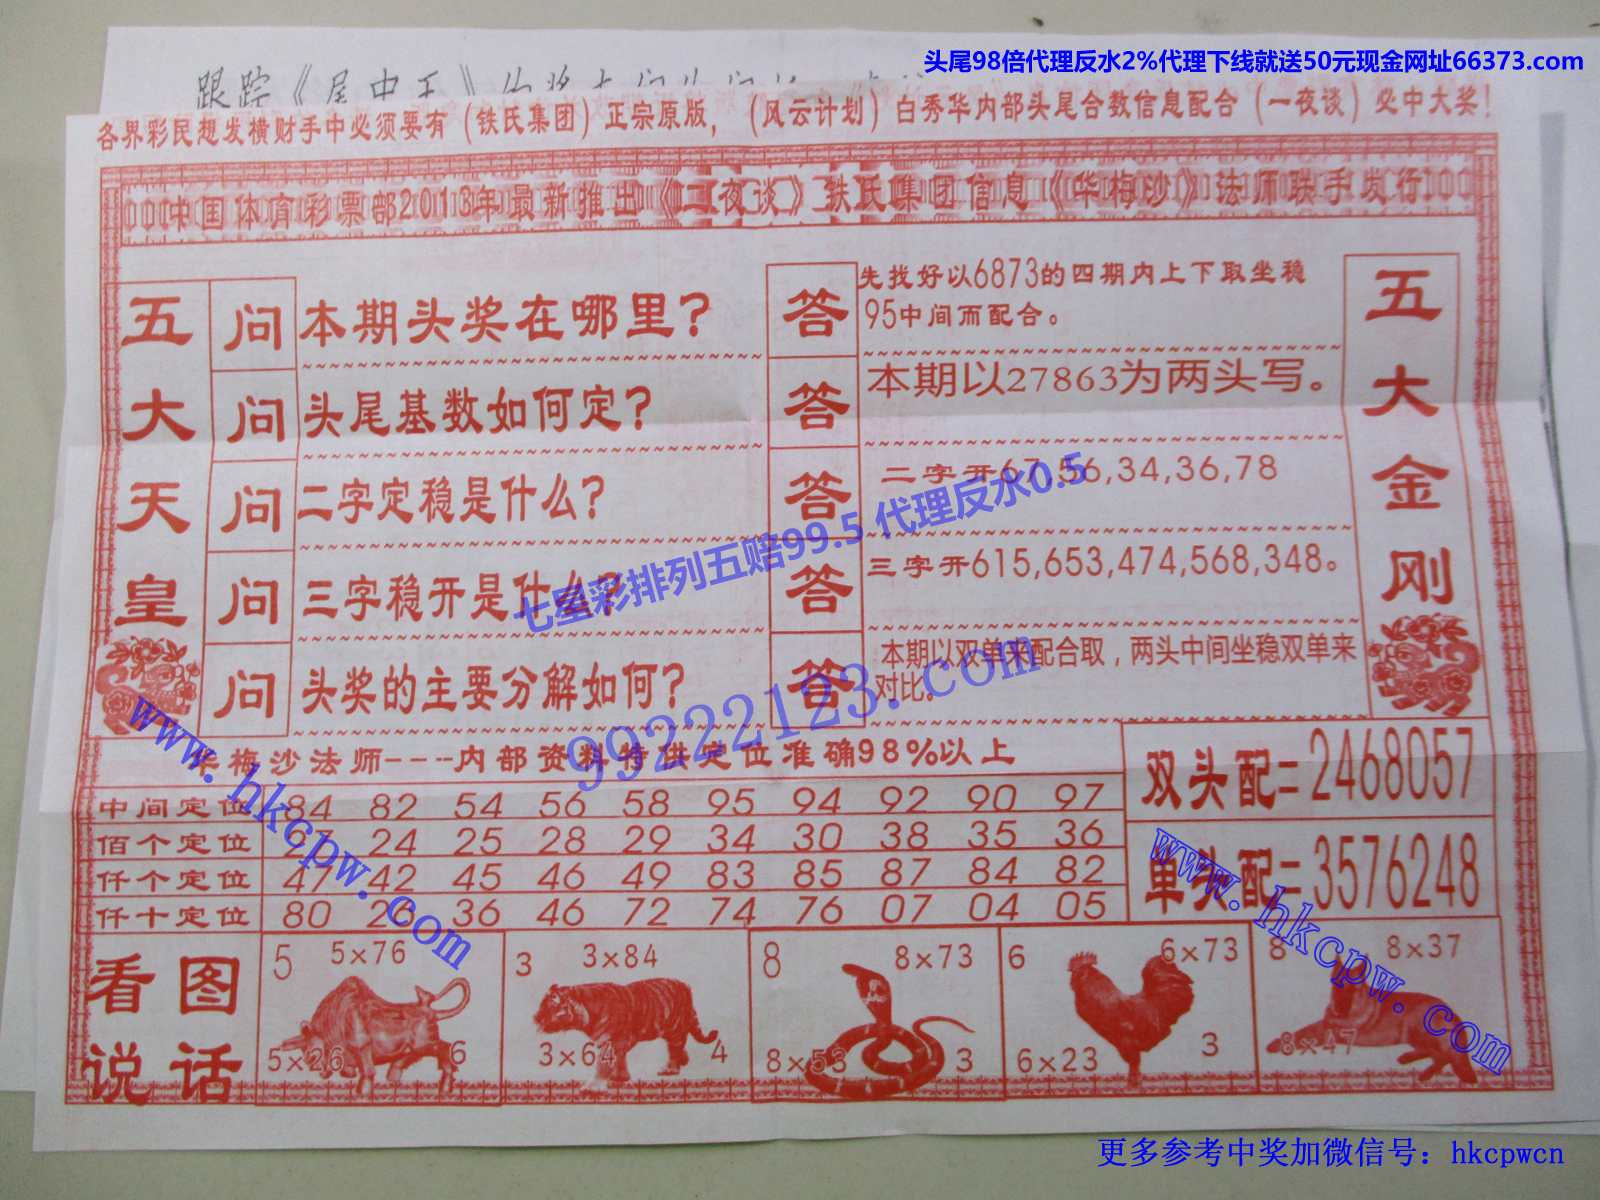 头尾98倍代理反水2%代理下线就送50元现金网址66373.com
跟踪《尾中王》
各界彩民想发横财手中必须要有(铁氏集团)正宗原版,(风云计划)白秀华内部头尾合数信息配合(一夜谈)必中大奖!
中国体育彩票部2013年最新推出《二夜谈》铁氏集团信息《华梅沙》法师联手发行
五大天皇
问 本期头奖在哪里?
答 先找好以6873的四期内上下取坐稳
95中间而配合。
问 头尾基数如何定?
答 本期以27863为两头写。
问 二字定稳是什么?
答 二字开67,56,34,36,78
问 三字稳开是什么?
答 三字开615,653,474,568,348。
问 头奖的主要分解如何?
答 本期以双单来配合取,两头中间坐稳双单来
对比。
五大金刚
七星彩排列五赔99.5 代理反水0.5
99222123.com
华梅沙法师----内部资料特供定位准确98%以上
中间定位 84 82 54 56 58 95 94 92 90 97
佰个定位 27 24 25 28 29 34 30 38 35 36
仟个定位 47 42 45 46 49 83 85 87 84 82
仟十定位 80 26 36 46 72 74 76 07 04 05
双头配=2468057
单头配=3576248
www.hkcpw.com
www.hkcpw.com
看图
说话
5 5×76
5×26 6
3 3×84
3×64 4
8 8×73
8×53 3
6 6×73
6×23 3
8 8×37
8×47
更多参考中奖加微信号: hkcpwcn